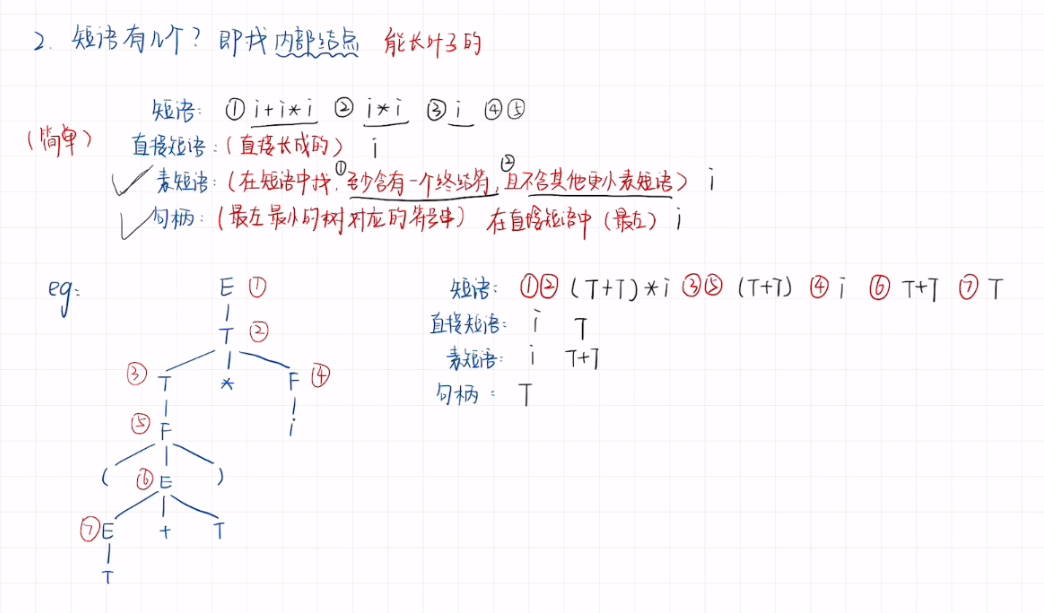 2. 短语有几个? 即找内部结点 能长叶子的
短语: ① i+i*i ② i*i ③ i ④⑤
(简单)
直接短语:(直接长成的) i
素短语:(在短语中找,①至少含有一个终结符,②且不含其他更小素短语) i
句柄:(最左最小的树对应的符号串) 在直接短语中(最左) i
eg:
E ①
T ②
③ T * F ④
⑤ F i
( ⑥ E )
⑦ E + T
T
短语: ①② (T+T)*i ③⑤ (T+T) ④ i ⑥ T+T ⑦ T
直接短语: i T
素短语: i T+T
句柄: T